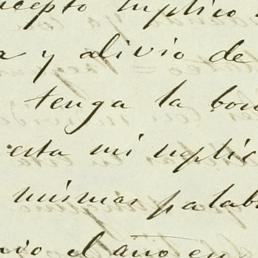 cepto suplico
a y alivio de
tenga la bon
esta mi suplic
mismas palab
nio el año en